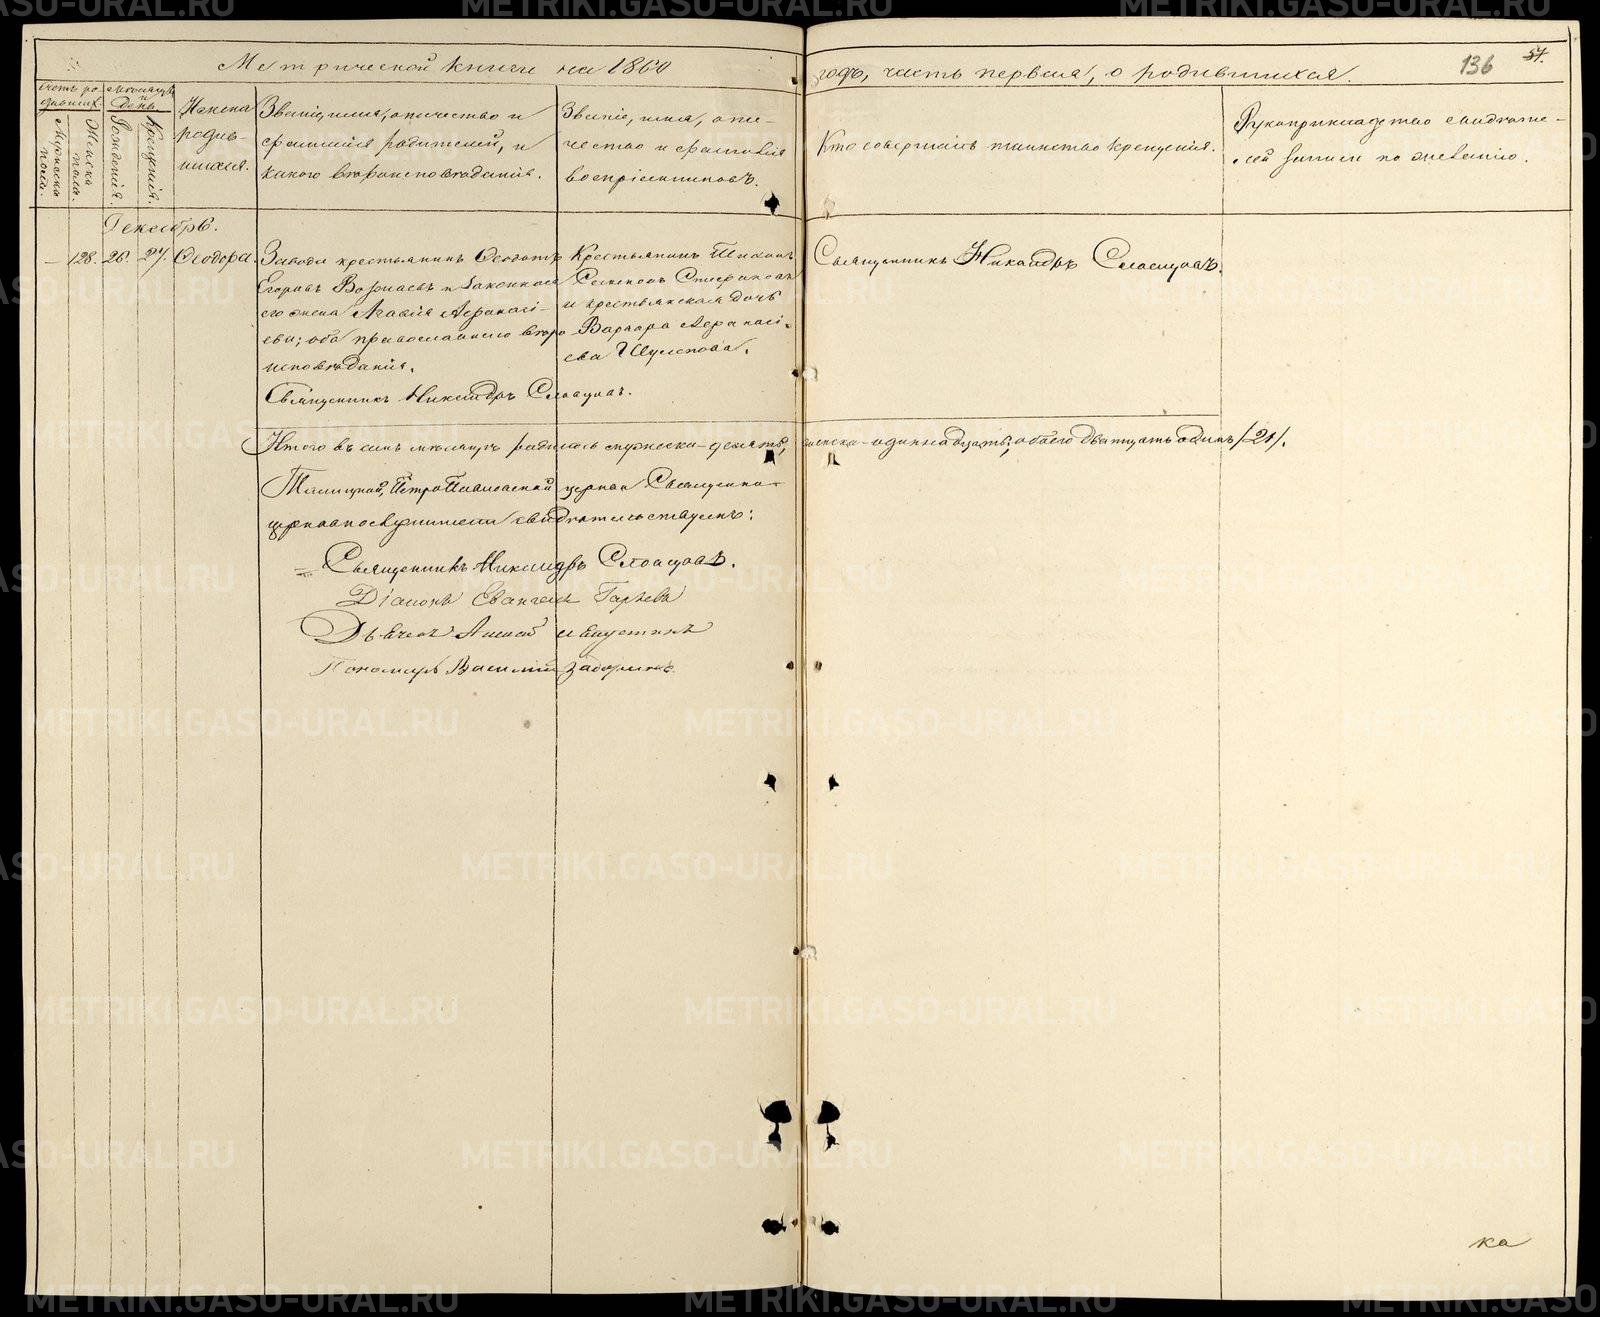 Метрической книги на 1860
годъ, часть первая, о родившихся.
136
57.
Счетъ ро-
дившихся.
Мужеска пола.
Женска пола.
Мѣсяцъ и
День.
Рожденія.
Крещенія.
Имена
родив-
шихся.
Званіе, имя, отчество и
фамилія родителей, и
какого вѣроисповѣданія.
Званіе, имя, оте-
чество и фамилія
воспріемниковъ.
Кто совершалъ таинство крещенія.
Рукоприкладство свидѣте-
лей записи по желанію.
Декабрь.
— 128. 26. 27. Ѳеодора.
Завода крестьянинъ Ѳеодотъ
Егоровъ и законная
его жена Агафія Аѳанасі-
ева; оба православнаго вѣро-
исповѣданія.
Священникъ Никандръ Словцовъ.
Крестьянинъ Тихонъ
Семеновъ Стефановъ
и крестьянская дочь
Варвара Аѳанасі-
ева Шулепова.
Священникъ Никандръ Словцовъ.
Итого въ семъ мѣсяцѣ родилось мужеска-десять, женска-одиннадцать; обоего двадцать одинъ /21/.
Талицкой, Петро Павловской церкви Священно-
церковнослужители свидѣтельствуемъ:
Священникъ Никандръ Словцовъ.
Діаконъ Евангелъ
Дьячекъ
Пономарь Василій
ка
METRIKI.GASO-URAL.RU